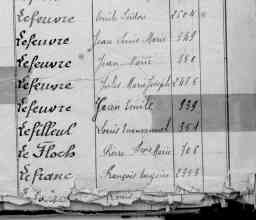 Lefeuvre Emile Isidore 2504
Lefeuvre Jean Louis Marie 549
Lefeuvre Jean Marie
Lefeuvre Jules Marie Joseph 2486
Lefeuvre Jean Emile 939
Lefilleul Louis Emmanuel 351
Le Floch Pierre Marie 706
Lefranc François Eugène 2393